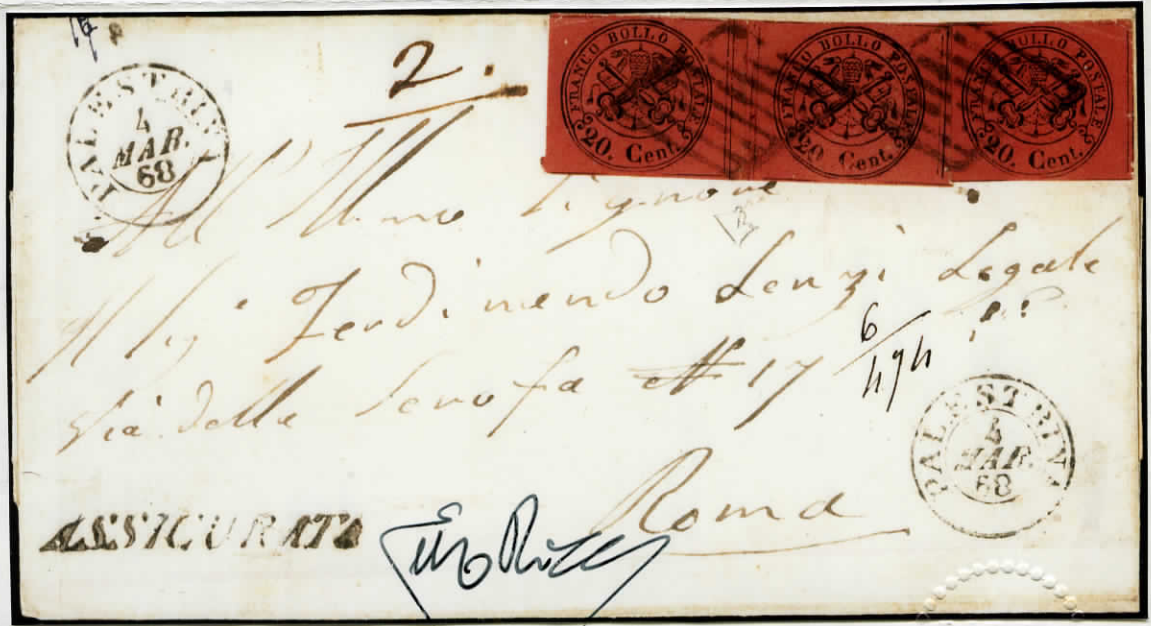 PALESTRINA
4
MAR.
68
2.
FRANCO BOLLO POSTALE
20. Cent.
FRANCO BOLLO POSTALE
20. Cent.
FRANCO BOLLO POSTALE
20. Cent.
All' Illmo Signore
Il Sigr Ferdinando Lenzi Legale
Via della Scrofa N 17
6
494
Roma
PALESTRINA
4
MAR.
68
ASSICURATA